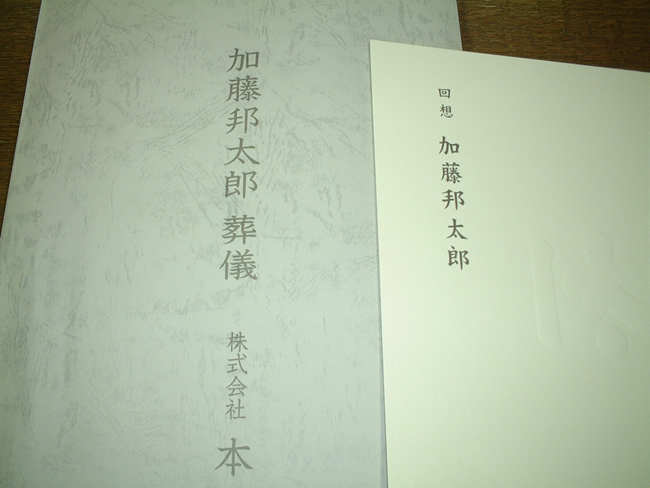 加藤邦太郎 葬儀
株式会社 本
回想 加藤邦太郎